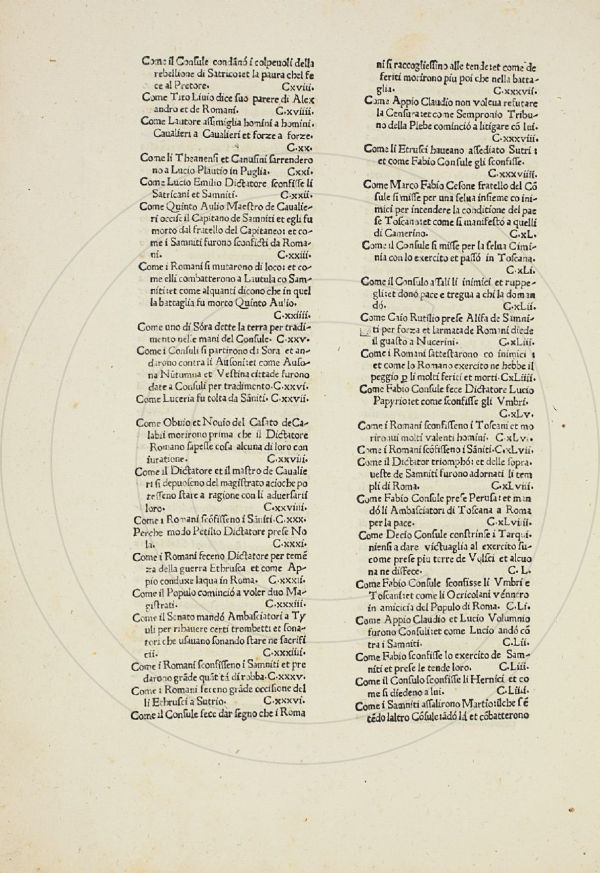 Come il Consule condãnó i colpeuoli della
rebellione di Satrico:et la paura chel fe
ce al Pretore. C.xviii.
Come Tito Liuio dice suo parere di Alex
andro et de Romani. C.xviiii.
Come Lautore assimiglia homini a homini.
Caualieri a Caualieri et forze a forze.
C.xx.
Come li Theanensi et Canusini sarrendero
no a Lucio Plautio in Puglia. Cxxi.
Come Lucio Emilio Dictatore sconfisse li
Satricani et Samniti. C.xxii.
Come Quinto Aulio Maestro de Caualie-
ri occise il Capitano de Samniti et egli fu
morto dal fratello del Capitaneo:et co-
me i Samniti furono sconficti da Roma-
ni. C.xxiii.
Come i Romani si mutarono di loco: et co-
me elli combatterono a Lautula co Sam-
niti:et come alquanti dicono che in quel
la battaglia fu morto Quinto Aulio.
C.xxiiii.
Come uno di Sora dette la terra per tradi-
mento nelle mani del Consule. C.xxv.
Come i Consuli si partirono di Sora et an-
darono contra li Ausoni:et come Auso-
na Nũtumia et Vestina cittade furono
date a Consuli per tradimento.C.xxvi.
Come Luceria fu tolta da Sãniti. C.xxvii.
Come Obuio et Nouio del Casato deCa-
labii morirono prima che il Dictatore
Romano sapesse cosa alcuna di loro con
iuratione. C.xxviii.
Come il Dictatore et il mastro de Caualie
ri si depuoseno del magistrato acioche po
tesseno stare a ragione con li aduersarii
loro. C.xxviiii.
Come i Romani scõfisseno i Sãniti.C.xxx.
Perche modo Petilio Dictatore prese No
la. C.xxxi.
Come i Romani feceno Dictatore per temẽ
za della guerra Ethrusca et come Ap-
pio conduxe laqua in Roma. C.xxxii.
Come il Populo cominció a voler duo Ma-
gistrati. C.xxxiii.
Come il Senato mandó Ambasciatori a Ty
uli per rihauere certi trombetti et sona-
tori che usauano sonando stare ne sacrifi
cii. C.xxxiiii.
Come i Romani sconfisseno i Samniti et pre
darono grãde quãtitá di robba.C.xxxv.
Come i Romani feceno grãde occisione del
li Ethrusci a Sutrio. C.xxxvi.
Come il Consule fece dar segno che i Roma
ni si raccogliessino alle tende:et come de
feriti morirono piu poi che nella batta-
glia. C.xxxvii.
Come Appio Claudio non voleua refutare
la Censura:et come Sempronio Tribu-
no della Plebe cominció a litigare cõ lui.
C.xxxviii.
Come li Etrusci haueano assediato Sutri:
et come Fabio Consule gli sconfisse.
C.xxxviiii.
Come Marco Fabio Cesone fratello del Cõ
sule si misse per una selua insieme co ini-
mici per intendere la conditione del pae
se Toscano:et come si manifestó a quelli
di Camerino. C.xL.
Come il Consule si misse per la selua Cimi-
nia con lo exercito et passó in Toscana.
C.xLi.
Come il Consulo assali li inimici et ruppe-
gli:et donó pace e tregua a chi la doman
dó. C.xLii.
Come Caio Rutilio prese Alifa de Samni-
ti per forza et larmata de Romani diede
il guasto a Nucerini. C.xLiii.
Come i Romani sattestarono co inimici:
et come lo Romano exercito ne hebbe il
peggio p li molti feriti et morti.CxLiiii.
Come Fabio Consule fece Dictatore Lucio
Papyrio:et come sconfisse gli Vmbri.
C.xLv.
Come i Romani sconfisseno i Toscani et mo
rironui molti valenti homini. C.xLvi.
Come i Romani scõfisseno i Sãniti.C.xLvii
Come il Dictator triomphó:et delle sopra-
ueste de Samniti furono adornati li tem
pli di Roma. C.xLviii.
Come Fabio Consule prese Perusa:et man
dó li Ambasciatori di Toscana a Roma
per la pace. C.xLviiii.
Come Decio Consule constrinse i Tarqui-
niensi a dare victuaglia al exercito su-
come prese piu terre de Volsci et alcuo
na ne disfece. C.L.
Come Fabio Consule sconfisse li Vmbri e
Toscani:et come li Ocricolani vẽnero
in amicicia del Populo di Roma. C.Li.
Come Appio Claudio et Lucio Volumnio
furono Consuli:et come Lucio andó cõ
tra i Samniti. C.Lii.
Come Fabio sconfisse lo exercito de Sam-
niti et prese le tende loro. C.Liii.
Come il Consulo sconfisse li Hernici et co
me si diedeno a lui. C.Liiii.
Come i Samniti assalirono Martio:ilche sẽ
tẽdo laltro Cõsule:ãdó lá et cõbatterono